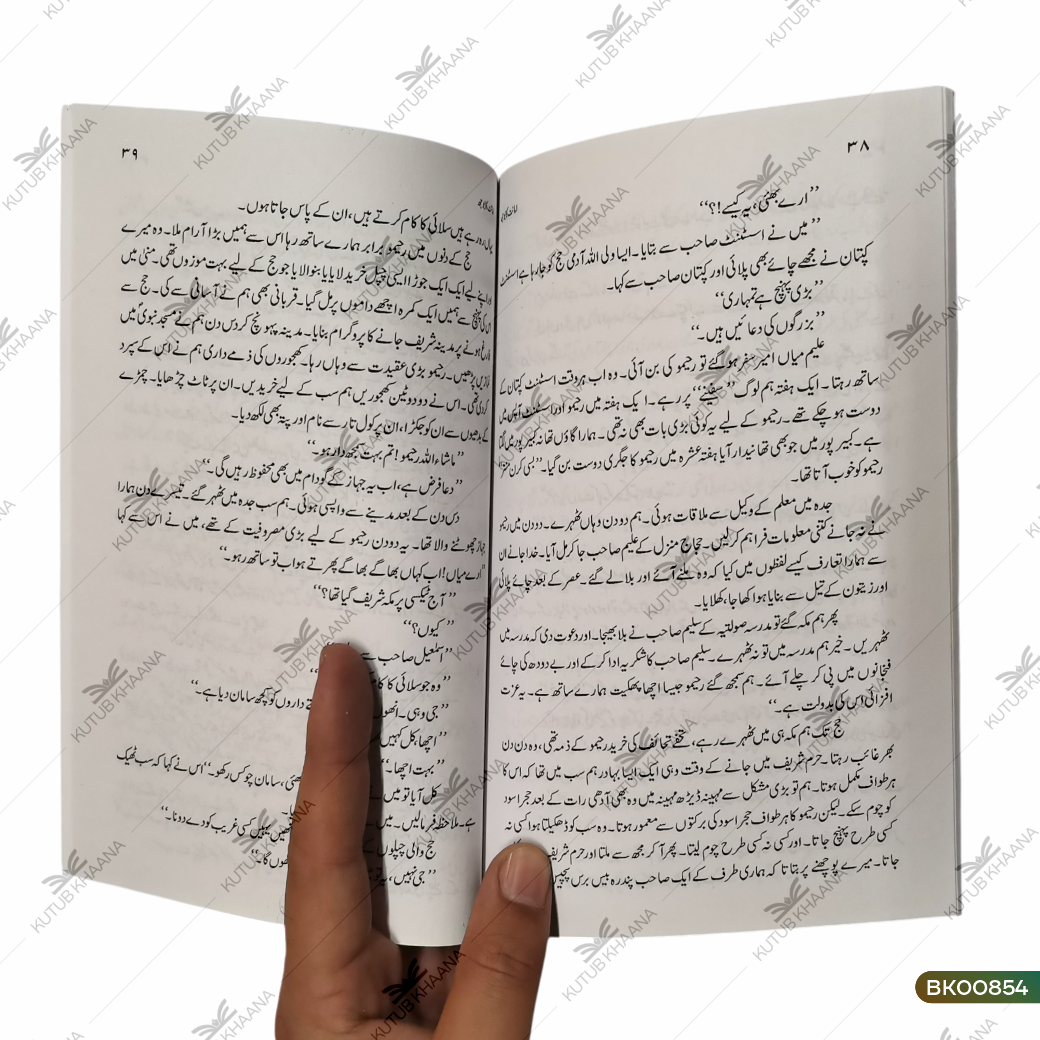 ۳۸
’’ارے بھئی، یہ کیسے!؟‘‘
’’میں نے اسٹنٹ صاحب سے بتایا۔ ایسا ولی اللہ آدمی حج کو جا رہا ہے اسٹنٹ
کپتان نے مجھے چائے بھی پلائی اور کپتان صاحب سے کہا۔
’’بڑی پہنچ ہے تمہاری‘‘
’’بزرگوں کی دعائیں ہیں۔‘‘
علیم میاں امیر سفر ہو گئے تو رحیمو کی بن آئی۔ وہ اب ہر وقت اسٹنٹ کپتان کے
ساتھ رہتا۔ ایک ہفتہ ہم لوگ ’’سفینے‘‘ پر رہے۔ ایک ہفتہ میں رحیمو اور اسٹنٹ آپس میں
دوست ہو چکے تھے۔ رحیمو کے لیے یہ کوئی بڑی بات بھی نہ تھی۔ ہمارا گاؤں تھانہ کبیر پور میں لگتا
ہے۔ کبیر پور میں جو بھی تھانیدار آیا ہفتہ عشرہ میں رحیمو کا جگری دوست بن گیا۔
رحیمو کو خوب آتا تھا۔
جدہ میں معلم کے وکیل سے ملاقات ہوئی۔ ہم دو دن وہاں ٹھہرے۔ دو دن میں رحیمو
نے نہ جانے کتنی معلومات فراہم کر لیں۔ حجاج منزل کے علیم صاحب جا کر مل آیا۔ خدا جانے ان
سے ہمارا تعارف کیسے لفظوں میں کیا کہ وہ ملنے آئے اور بلا لے گئے۔ عصر کے بعد چائے پلائی
اور زیتون کے تیل سے بنایا ہوا کھاجا، کھلایا۔
پھر ہم مکہ گئے تو مدرسہ صولتیہ کے سلیم صاحب نے بلا بھیجا۔ اور دعوت دی کہ مدرسہ میں
ٹھہریں۔ خیر ہم مدرسہ میں تو نہ ٹھہرے۔ سلیم صاحب کا شکریہ ادا کر کے اور بے دودھ کی چائے
فنجانوں میں پی کر چلے آئے۔ ہم سمجھ گئے رحیمو جیسا اچھا پھکیت ہمارے ساتھ ہے۔ یہ عزت
افزائی اس کی بدولت ہے۔‘‘
حج تک ہم مکہ ہی میں ٹھہرے رہے، تحفے تحائف کی خرید رحیمو کے ذمہ تھی، وہ دن دن
بھر غائب رہتا۔ حرم شریف میں جانے کے وقت وہی ایک ایسا بہادر ہم سب میں تھا کہ اس کا
ہر طواف مکمل ہوتا۔ ہم تو بڑی مشکل سے مہینہ ڈیڑھ مہینہ میں وہ بھی آدھی رات کے بعد حجر اسود
کو چوم سکے۔ لیکن رحیمو کا ہر طواف حجر اسود کی برکتوں سے معمور ہوتا۔ وہ سب کو ڈھکیلتا ہوا کسی نہ
کسی طرح پہنچ جاتا۔ اور کسی نہ کسی طرح چوم لیتا۔ پھر آ کر مجھ سے ملتا اور حرم شریف
جاتا۔ میرے پوچھنے پر بتاتا کہ ہماری طرف کے ایک صاحب پندرہ بیس برس
۳۹
یہاں رہ رہے ہیں سلائی کا کام کرتے ہیں، ان کے پاس جاتا ہوں۔
حج کے دنوں میں رحیمو برابر ہمارے ساتھ رہا اس سے ہمیں بڑا آرام ملا۔ وہ میرے
اور اپنے لیے ایک ایک جوڑا ایسی چپل خرید لایا یا بنوا لایا جو حج کے لیے بہت موزوں تھی۔ منیٰ میں
اس کی پہنچ سے ہمیں ایک کمرہ اچھے داموں پر مل گیا۔ قربانی بھی ہم نے آسانی سے کی۔ حج سے
فارغ ہونے پر مدینہ شریف جانے کا پروگرام بنایا۔ مدینہ پہونچ کر دس دن ہم نے مسجد نبویؐ میں
نمازیں پڑھیں۔ رحیمو بڑی عقیدت سے وہاں رہا۔ کھجوروں کی ذمے داری ہم نے اس کے سپرد
کر دی تھی۔ اس نے دو دو ٹین کھجوریں ہم سب کے لیے خریدیں۔ ان پر ٹاٹ چڑھایا۔ چمڑے
کے بدھیوں سے ان کو جکڑا، ان پر کول تار سے نام اور پتہ بھی لکھ دیا۔
’’ماشاء اللہ رحیمو! تم بہت سمجھ دار ہو۔‘‘
’’دعا فرض ہے، اب یہ جہاز کے گودام میں بھی محفوظ رہیں گی۔‘‘
دس دن کے بعد مدینے سے واپسی ہوئی۔ ہم سب جدہ میں ٹھہر گئے۔ تیسرے دن ہمارا
جہاز چھوٹنے والا تھا۔ یہ دو دن رحیمو کے لیے بڑی مصروفیت کے تھے، میں نے اس سے کہا
’’ارے میاں! اب کہاں بھاگے بھاگے پھرتے ہو اب تو ساتھ رہو۔‘‘
’’آج ٹیکسی پر مکہ شریف گیا تھا؟‘‘
’’کیوں؟‘‘
’’اسمٰعیل صاحب سے
’’وہ جو سلائی کا کام
’’جی وہی۔ انھوں داروں کو کچھ سامان دیا ہے۔‘‘
’’اچھا، کل کہیں
’’بہت اچھا۔‘‘
کل آیا تو میں بھئی، سامان چوکس رکھو۔‘‘ اس نے کہا کہ سب ٹھیک
ہے۔ ملاحظہ فرمالیں۔ میں
حج والی چپلوں کے یہیں کسی غریب کو دے دو نا۔‘‘
’’جی نہیں، یہ
KUTUB KHAANA
BK00854